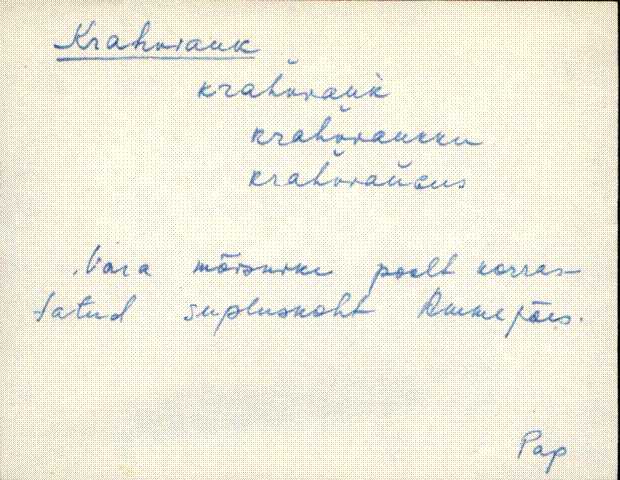 Krahviauk
krahviauk
krahviaukku
krahviaucus
Vara mõisniku poolt korras-
tatud supluskoht Ammejões.
Pap